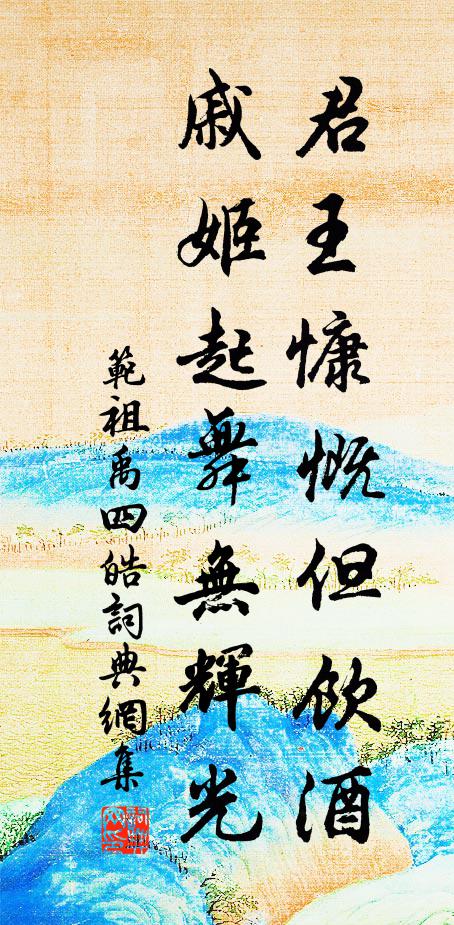 君王慷慨但飲酒
戚姬起舞無輝光
範祖禹四皓詞典網集